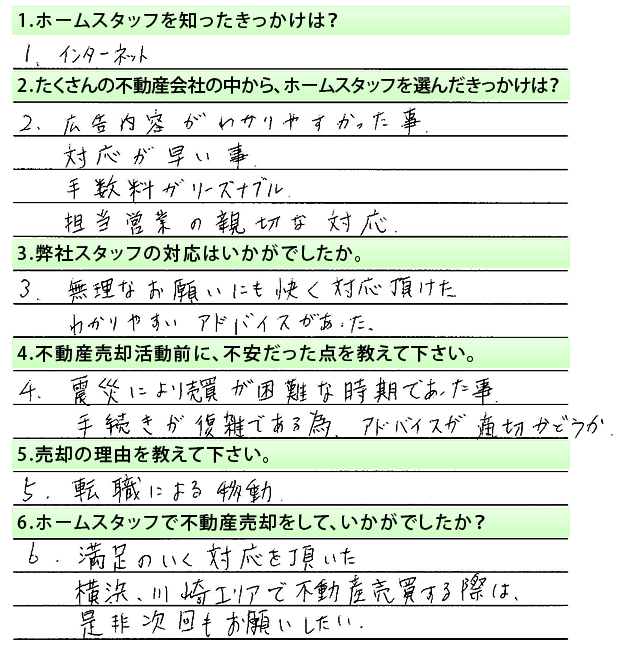 1.ホームスタッフを知ったきっかけは？
1. インターネット
2.たくさんの不動産会社の中から、ホームスタッフを選んだきっかけは？
2. 広告内容がわかりやすかった事.
対応が早い事.
手数料がリーズナブル.
担当営業の親切な対応.
3.弊社スタッフの対応はいかがでしたか。
3. 無理なお願いにも快く対応頂けた
わかりやすいアドバイスがあった。
4.不動産売却活動前に、不安だった点を教えて下さい。
4. 震災により売買が困難な時期であった事.
手続きが復雑である為、アドバイスが適切かどうか.
5.売却の理由を教えて下さい。
5. 転職による移動.
6.ホームスタッフで不動産売却をして、いかがでしたか？
6. 満足のいく対応を頂いた
横浜、川崎エリアで不動産売買する際は、
是非次回もお願いしたい.